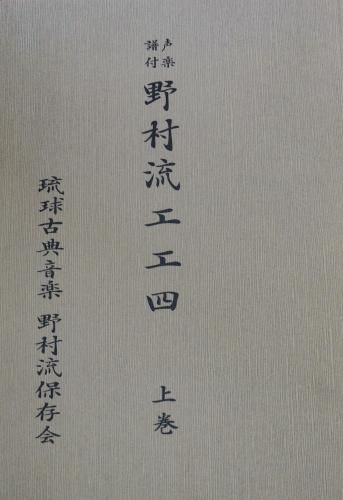 声楽譜付
野村流工工四
上巻
琉球古典音楽 野村流保存会